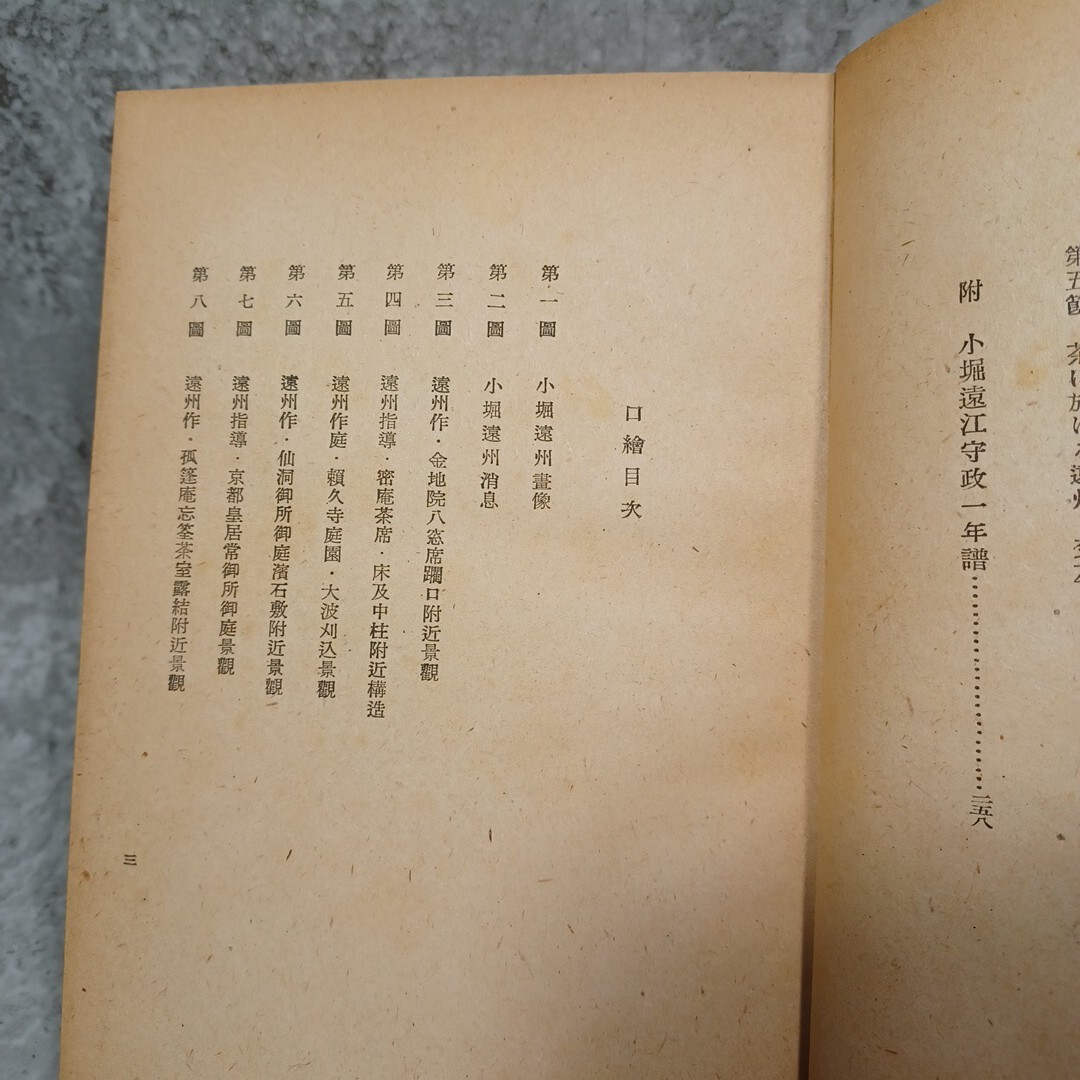 第五節 茶に於ける遠州
附 小堀遠江守政一年譜……………………二五八
口繪目次
第一圖 小堀遠州畫像
第二圖 小堀遠州消息
第三圖 遠州作・金地院八窓席躙口附近景觀
第四圖 遠州指導・密庵茶席・床及中柱附近構造
第五圖 遠州作庭・賴久寺庭園・大波刈込景觀
第六圖 遠州作・仙洞御所御庭濱石敷附近景觀
第七圖 遠州指導・京都皇居常御所御庭景觀
第八圖 遠州作・孤篷庵忘筌茶室露結附近景觀
三